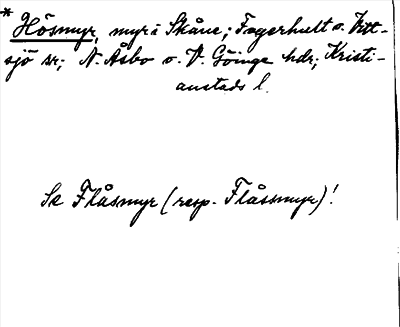 * Hösmyr, myr i Skåne; Fagerhult o. Vitt-
sjö sr; N. Åsbo o. V. Göinge hdr; Kristi-
anstads l.
Se Flåsmyr (resp. Flåssmyr)!